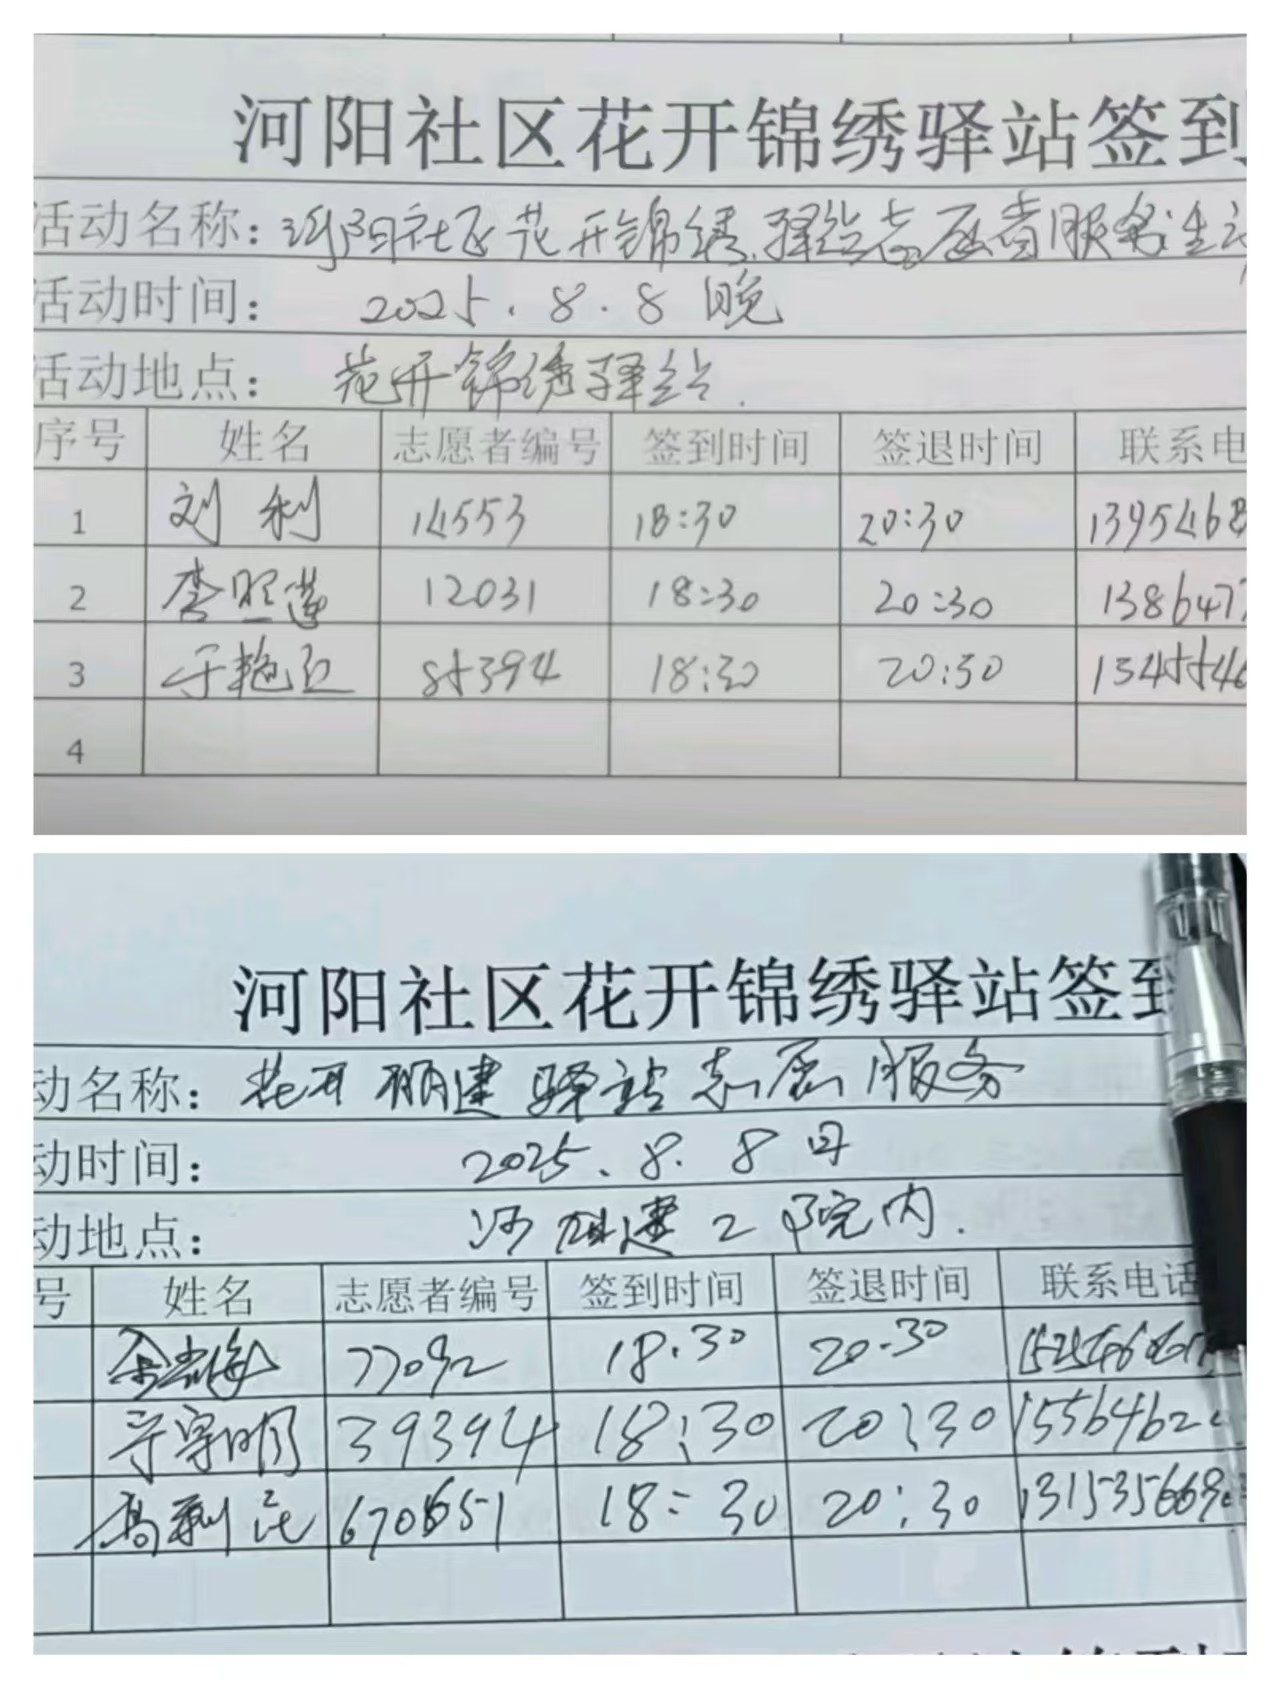 河阳社区花开锦绣驿站签到
活动名称：河阳社区花开锦绣驿站志愿者服务活动
活动时间： 2025.8.8 晚
活动地点： 花开锦绣驿站.
序号 姓名 志愿者编号 签到时间 签退时间 联系电
1 刘利 14553 18:30 20:30 1395468
2 李照莲 12031 18:30 20:30 138647
3 于艳 85394 18:30 20:30 1345546
4
河阳社区花开锦绣驿站签到
动名称：花开丽建驿站志愿服务
动时间： 2025.8.8日
动地点： 建2院内.
号 姓名 志愿者编号 签到时间 签退时间 联系电话
77092 18.30 20.30
于守明 39394 18:30 20:30 1556462
高利 18:30 20:30 131535669